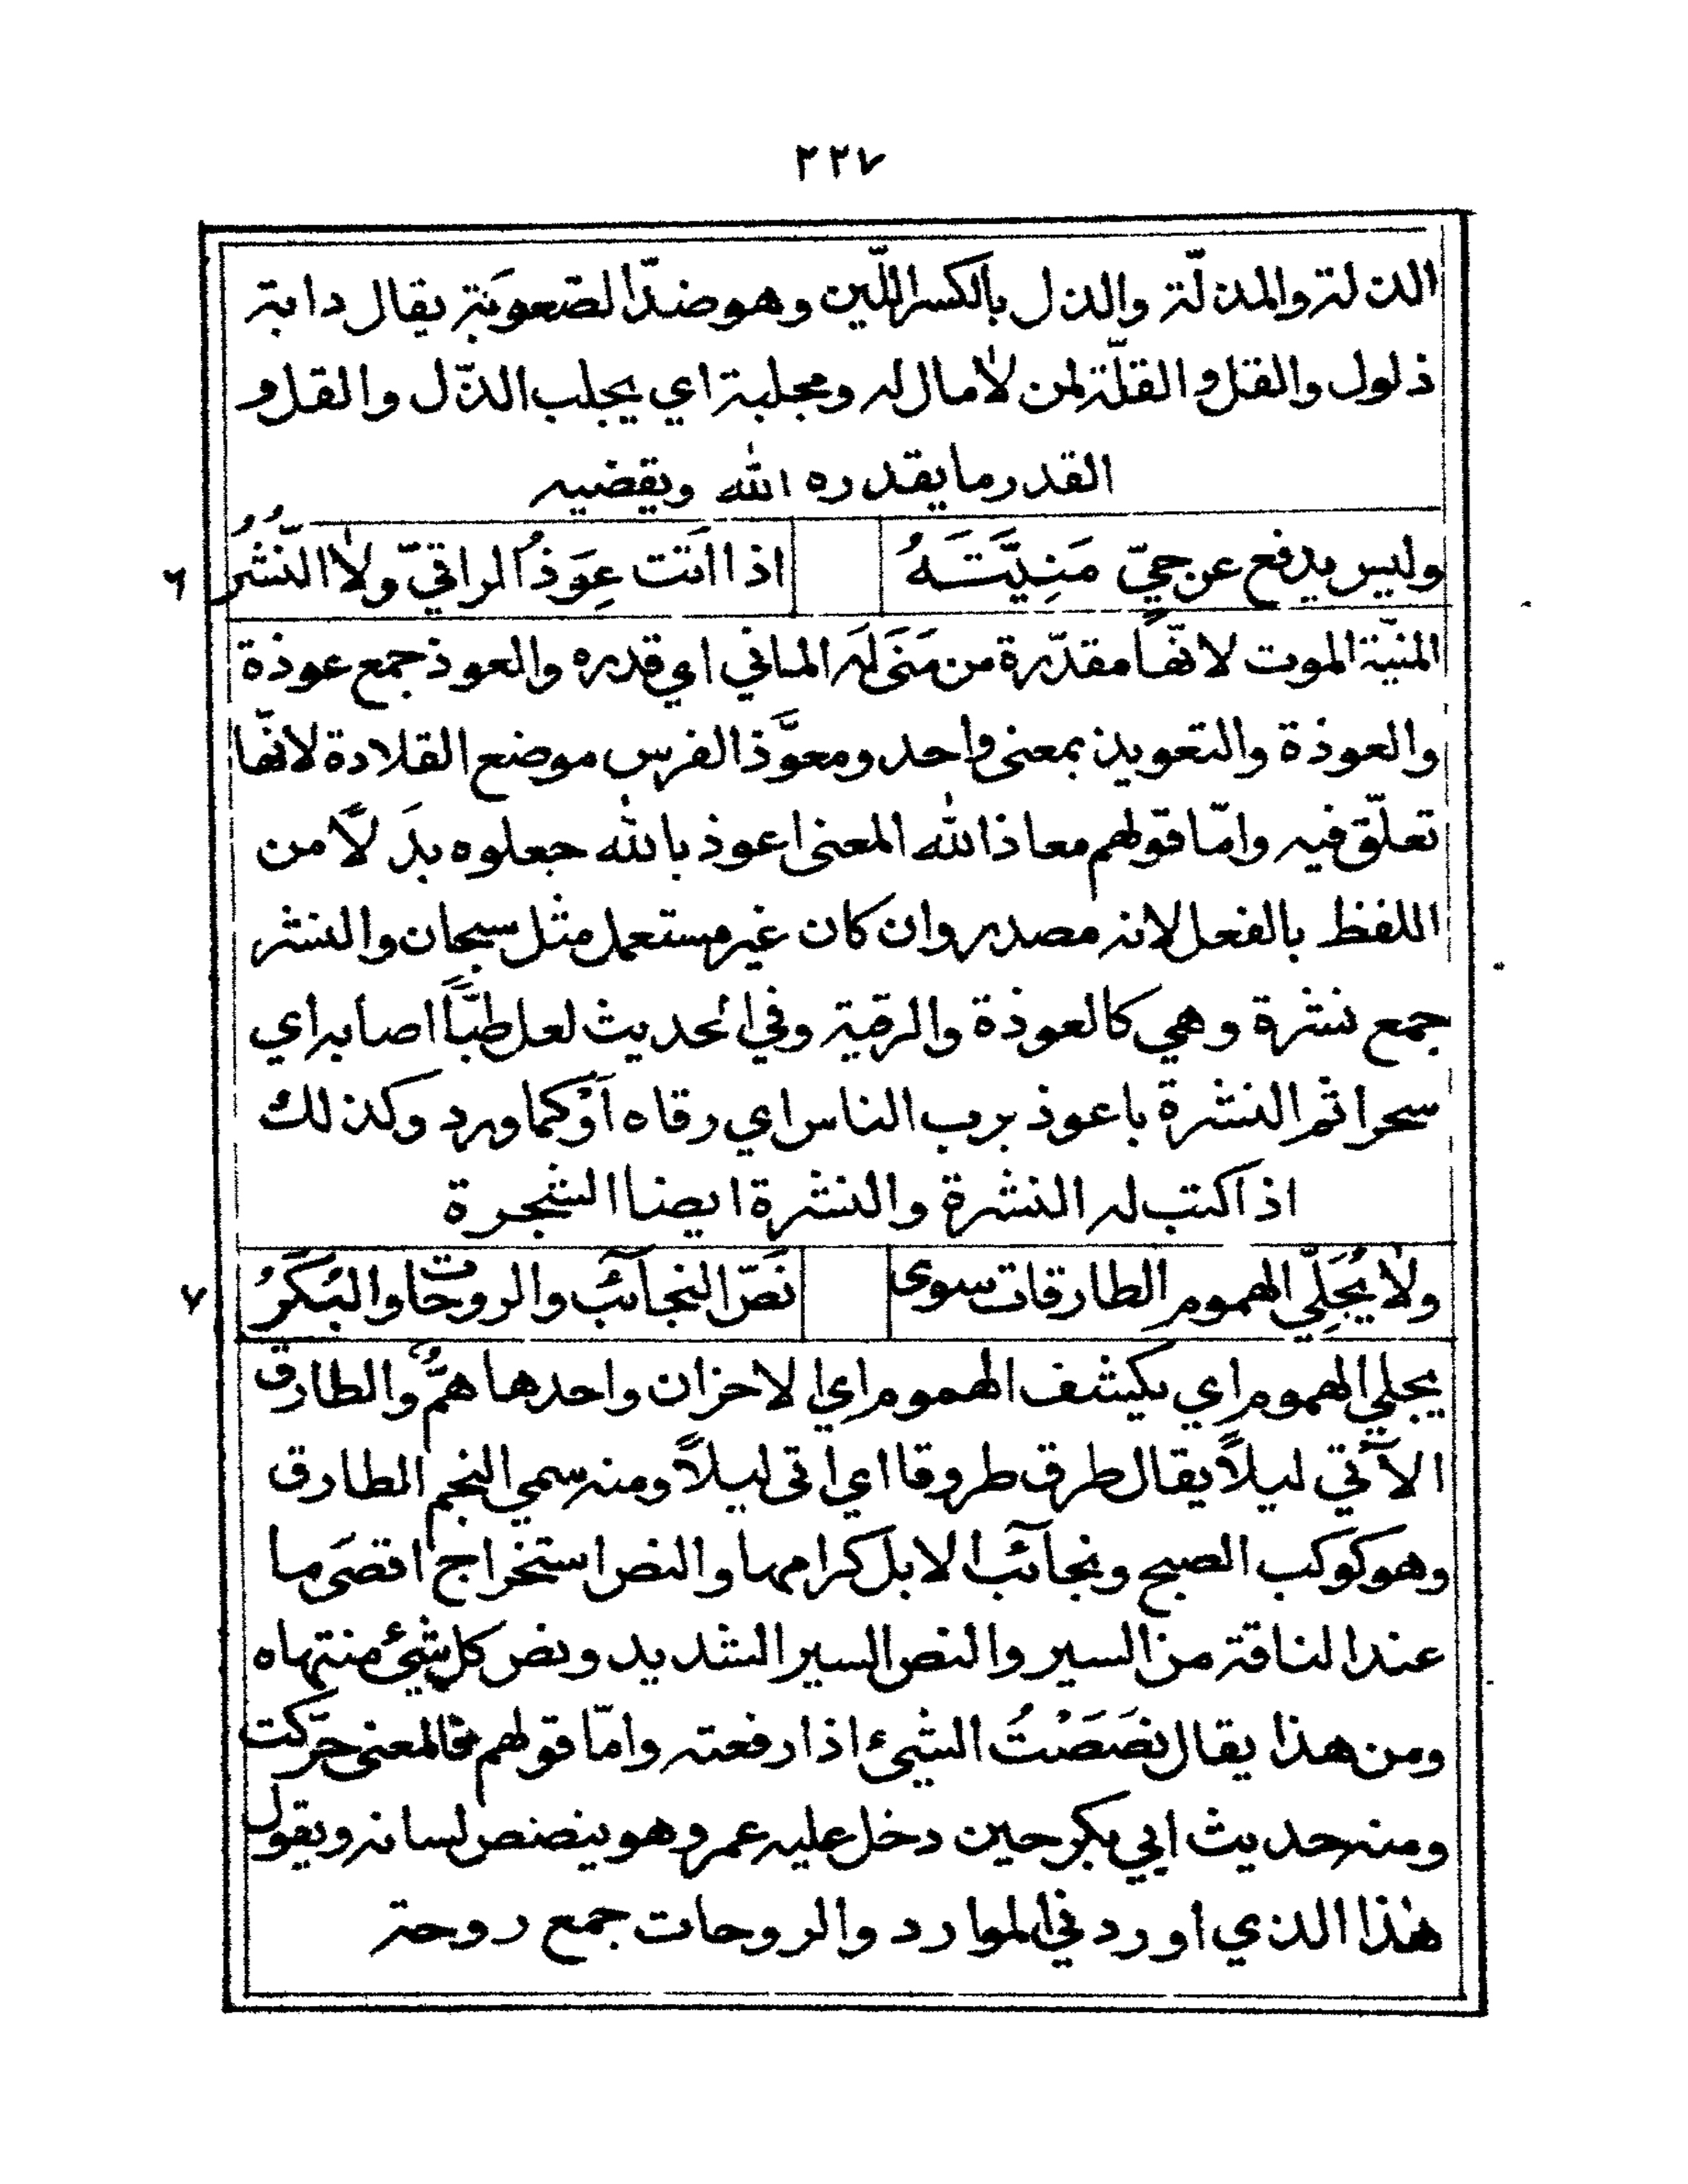 ٢٢٧
الذلة والمذلّة والذل بالكسر اللّين وهو ضدّ الصعوبَةِ يقال دابة
ذلول والقل و القلّة لمن لا مال له ومجلبة اي يجلب الذّل والقل و
القدر ما يقدره الله ويقضيه
وليس يدفع عن حيّ مَنِيَّتَهُ اذا اتت عِوَذُ الراقيّ ولا النُّشُرُ ٦
المنيّة الموت لانّها مقدّرة من مَنَى لَه الماني اي قدره والعوذ جمع عوذة
والعوذة والتعويذ بمعنى واحد ومعوَّذ الفرس موضع القلادة لانّها
تعلّق فيه وامّا قولهم معاذ الله المعنى اعوذ بالله جعلوه بدَلاً من
اللفظ بالفعل لانه مصدر وان كان غير مستعمل مثل سبحان والنشر
جمع نشرة وهي كالعوذة والرقية وفي الحديث لعل طبّاً اصابه اي
سحرا ثم النشرة باعوذ برب الناس اي رقاه اَوْ كما ورد وكذلك
اذا كتب له النشرة والنشرة ايضا الشجرة
ولا يُجَلِّي الهموم الطارقات سوى نَصّ النجائب والروحات والبُكَرُ ٧
يجلي الهموم اي يكشف الهموم اي الاحزان واحدها همٌّ والطارق
الآتي ليلاً يقال طرق طروقا اي اتى ليلاً ومنه سمي النجم الطارق
وهو كوكب الصبح ونجائب الابل كرامها والنص استخراج اقصَى ما
عند الناقة من السير والنص السير الشديد ونص كل شيئ منتهاه
ومن هذا يقال نصَصْتُ الشيئ اذا رفعته وامّا قولهم فالمعنى حرّكت
ومنه حديث ابي بكر حين دخل عليه عمر وهو ينصنص لسانه ويقول
هذا الذي اورد في الموارد والروحات جمع روحة